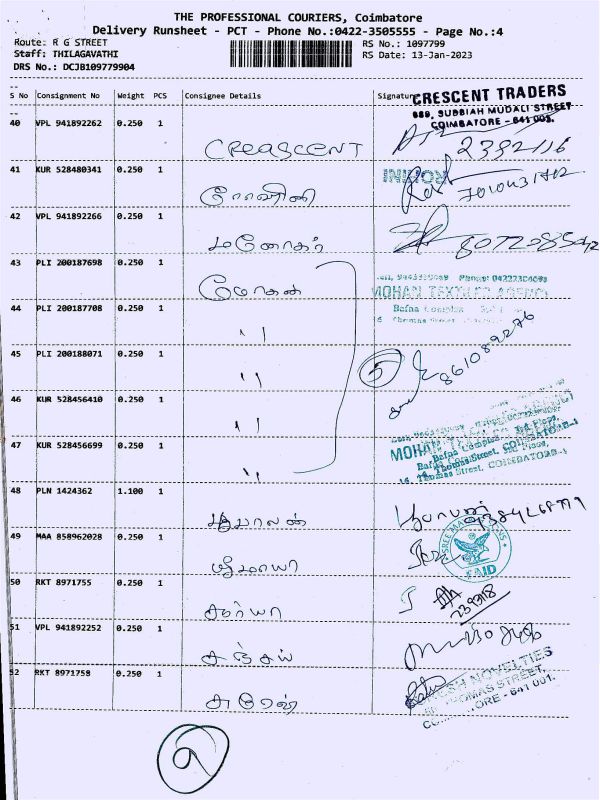 THE PROFESSIONAL COURIERS, Coimbatore
Delivery Runsheet - PCT - Phone No.:0422-3505555 - Page No.:4
Route: R G STREET
RS No.: 1097799
Staff: THILAGAVATHI
RS Date: 13-Jan-2023
DRS No.: DCJB109779904
S No Consignment No Weight PCS Consignee Details Signature
CRESCENT TRADERS
689, SUBBIAH MUDALI STREET
COIMBATORE - 641 001.
40 VPL 941892262 0.250 1 CREASCENT 2392116
41 KUR 528480341 0.250 1 ரோஹிணி ROHINI
42 VPL 941892266 0.250 1 மனோகர்
43 PLI 200187698 0.250 1 மோகன்
MOHAN TEXTILES AGENCY
Bafna Complex
44 PLI 200187708 0.250 1 "
45 PLI 200188071 0.250 1 " 5
861089276
46 KUR 528456410 0.250 1 "
47 KUR 528456699 0.250 1 "
MOHAN
Bafna Complex, 3rd Floor,
16, Thomas Street, COIMBATORE-1
48 PLN 1424362 1.100 1 பூபாலன்
49 MAA 858962028 0.250 1 ஸ்ரீமாயா
50 RKT 8971755 0.250 1 சூர்யா
51 VPL 941892252 0.250 1 சஞ்சய்
52 RKT 8971758 0.250 1 சுரேஷ்
NOVELTIES
THOMAS STREET,
COIMBATORE - 641 001.